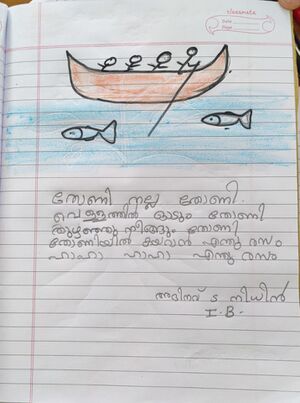 classmate
Date
Page
തോണി നല്ല തോണി
വെള്ളത്തിൽ ഓടും തോണി
തുഴഞ്ഞു നീങ്ങും തോണി
തോണിയിൽ കയറാൻ എന്തു രസം
ഹാഹാ ഹാഹാ എന്തു രസം
അഭിനവ് ടി നിധിൻ
I.B.